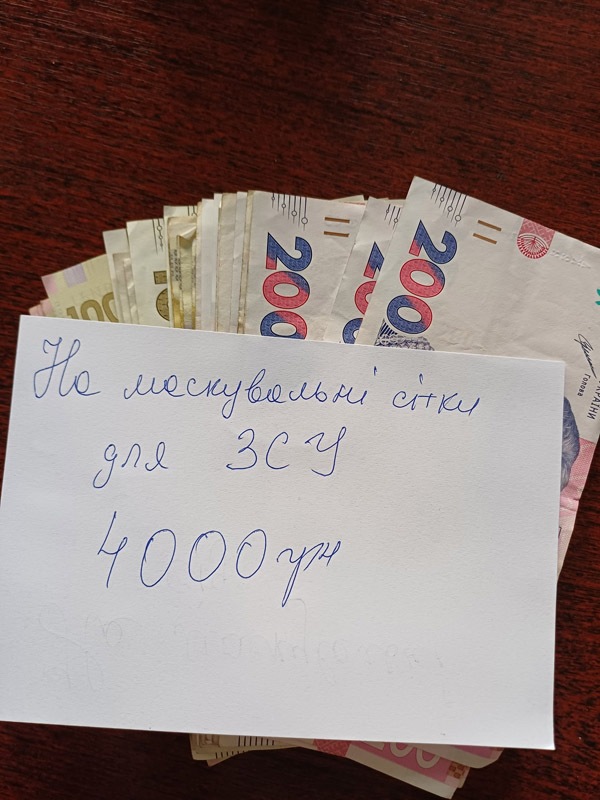 200
200
100
УКРАЇНИ
Голова
На маскувальні сітки
для ЗСУ
4000 грн